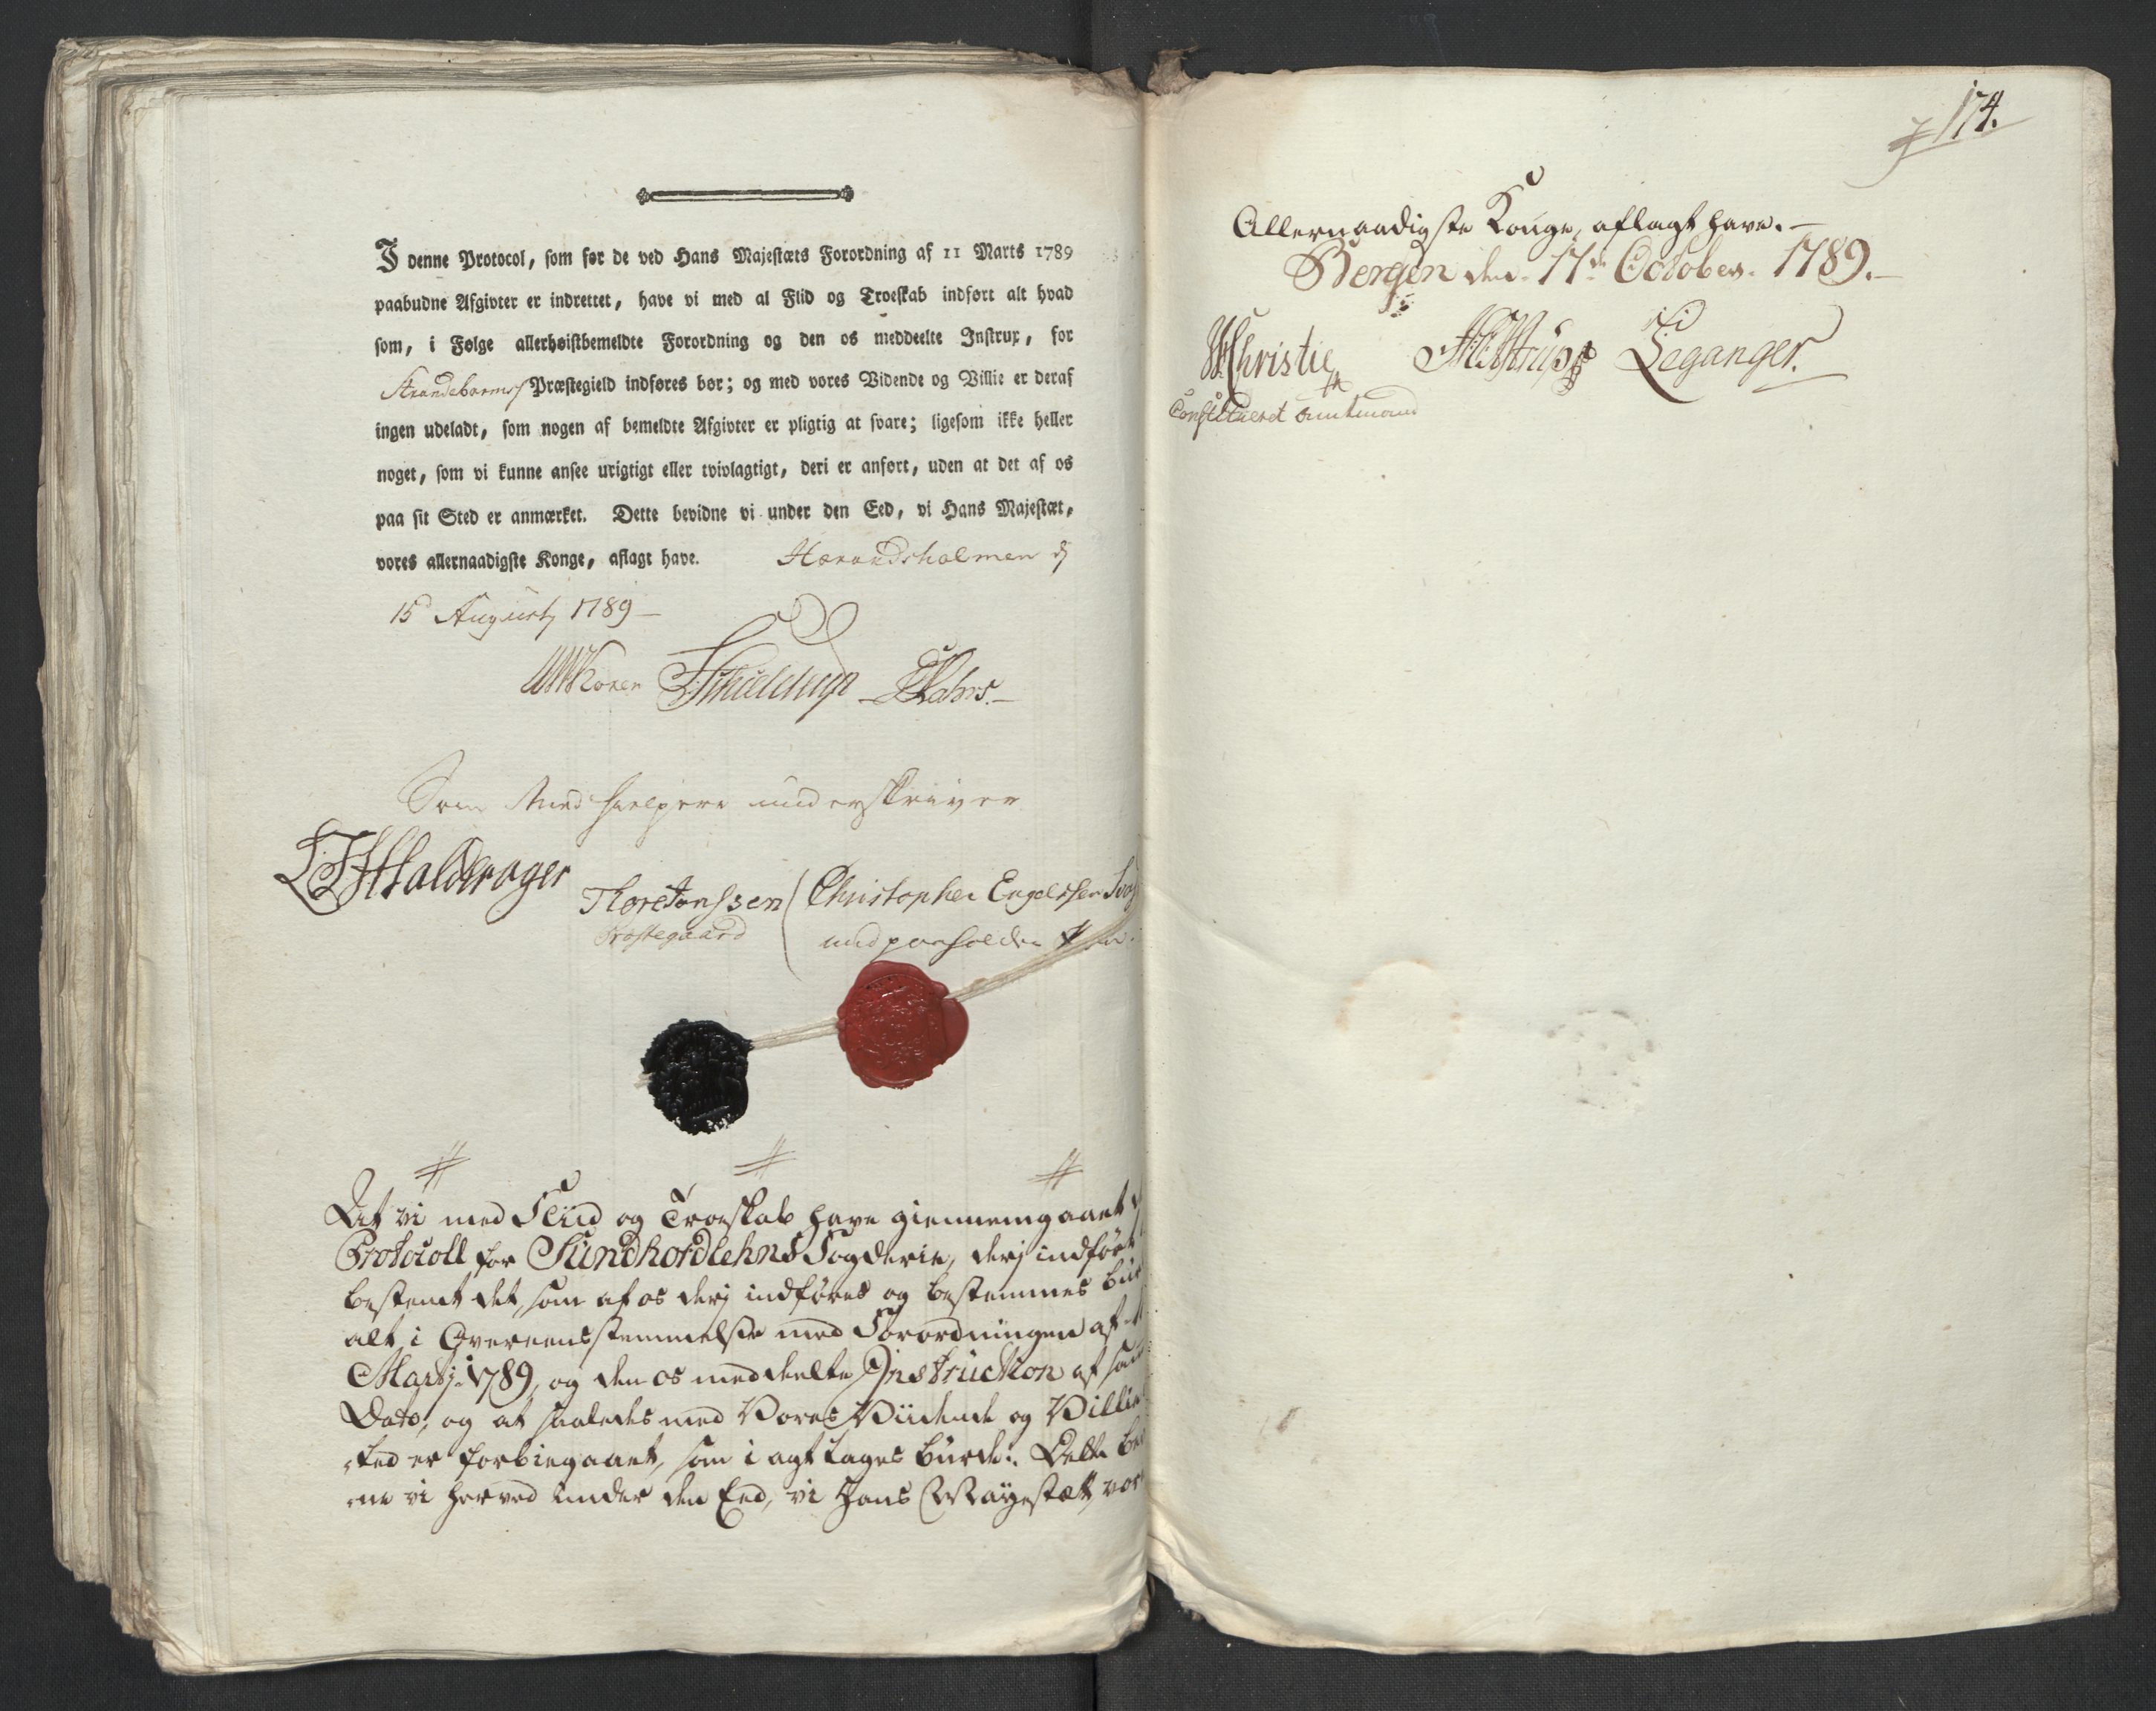 I denne Protocol, som før de ved Hans Majestæts Forordning af 11 Marts 1789
paabudne Afgivter er indrettet, have vi med al Flid og Troeskab indført alt hvad
som, i Følge allerhøistbemeldte Forordning og den os meddeelte Instrux, for
Strandebarms Præstegield indføres bør; og med vores Vidende og Villie er deraf
ingen udeladt, som nogen af bemeldte Afgivter er pligtig at svare; ligesom ikke heller
noget, som vi kunne ansee urigtigt eller tvivlagtigt, deri er anført, uden at det af os
paa sit Sted er anmærket. Dette bevidne vi under den Eed, vi Hans Majestæt,
vores allernaadigste Konge, aflagt have. Herandsholmen d
15 August 1789
WKoren
Som Medhielpere underskriver
Halderager Thore Jonssen Christopher Engelssen
Præstegaard med paaholden
At vi med Fliid og Troeskab have giennemgaaet
Protocoll for Sündhordlehns Fogderie, derj indført
bestemt det, som af os derj indføres og bestemmes bür
alt i Overeensstemmelse med Forordningen af
Martj 1789, og den os meddeelte Instruction af sam
Dato, og at saaledes med Vores Viidende og Villie
sted er forbiegaaet, som i agt tages bürde. Dette be
ne vi herved under den Eed, vi Hans Mayestætt, vor
174.
Allernaadigste Konge, aflagt have.
Bergen den 17de October 1789.
WChristie Leganger.
Constitueret Amtmand